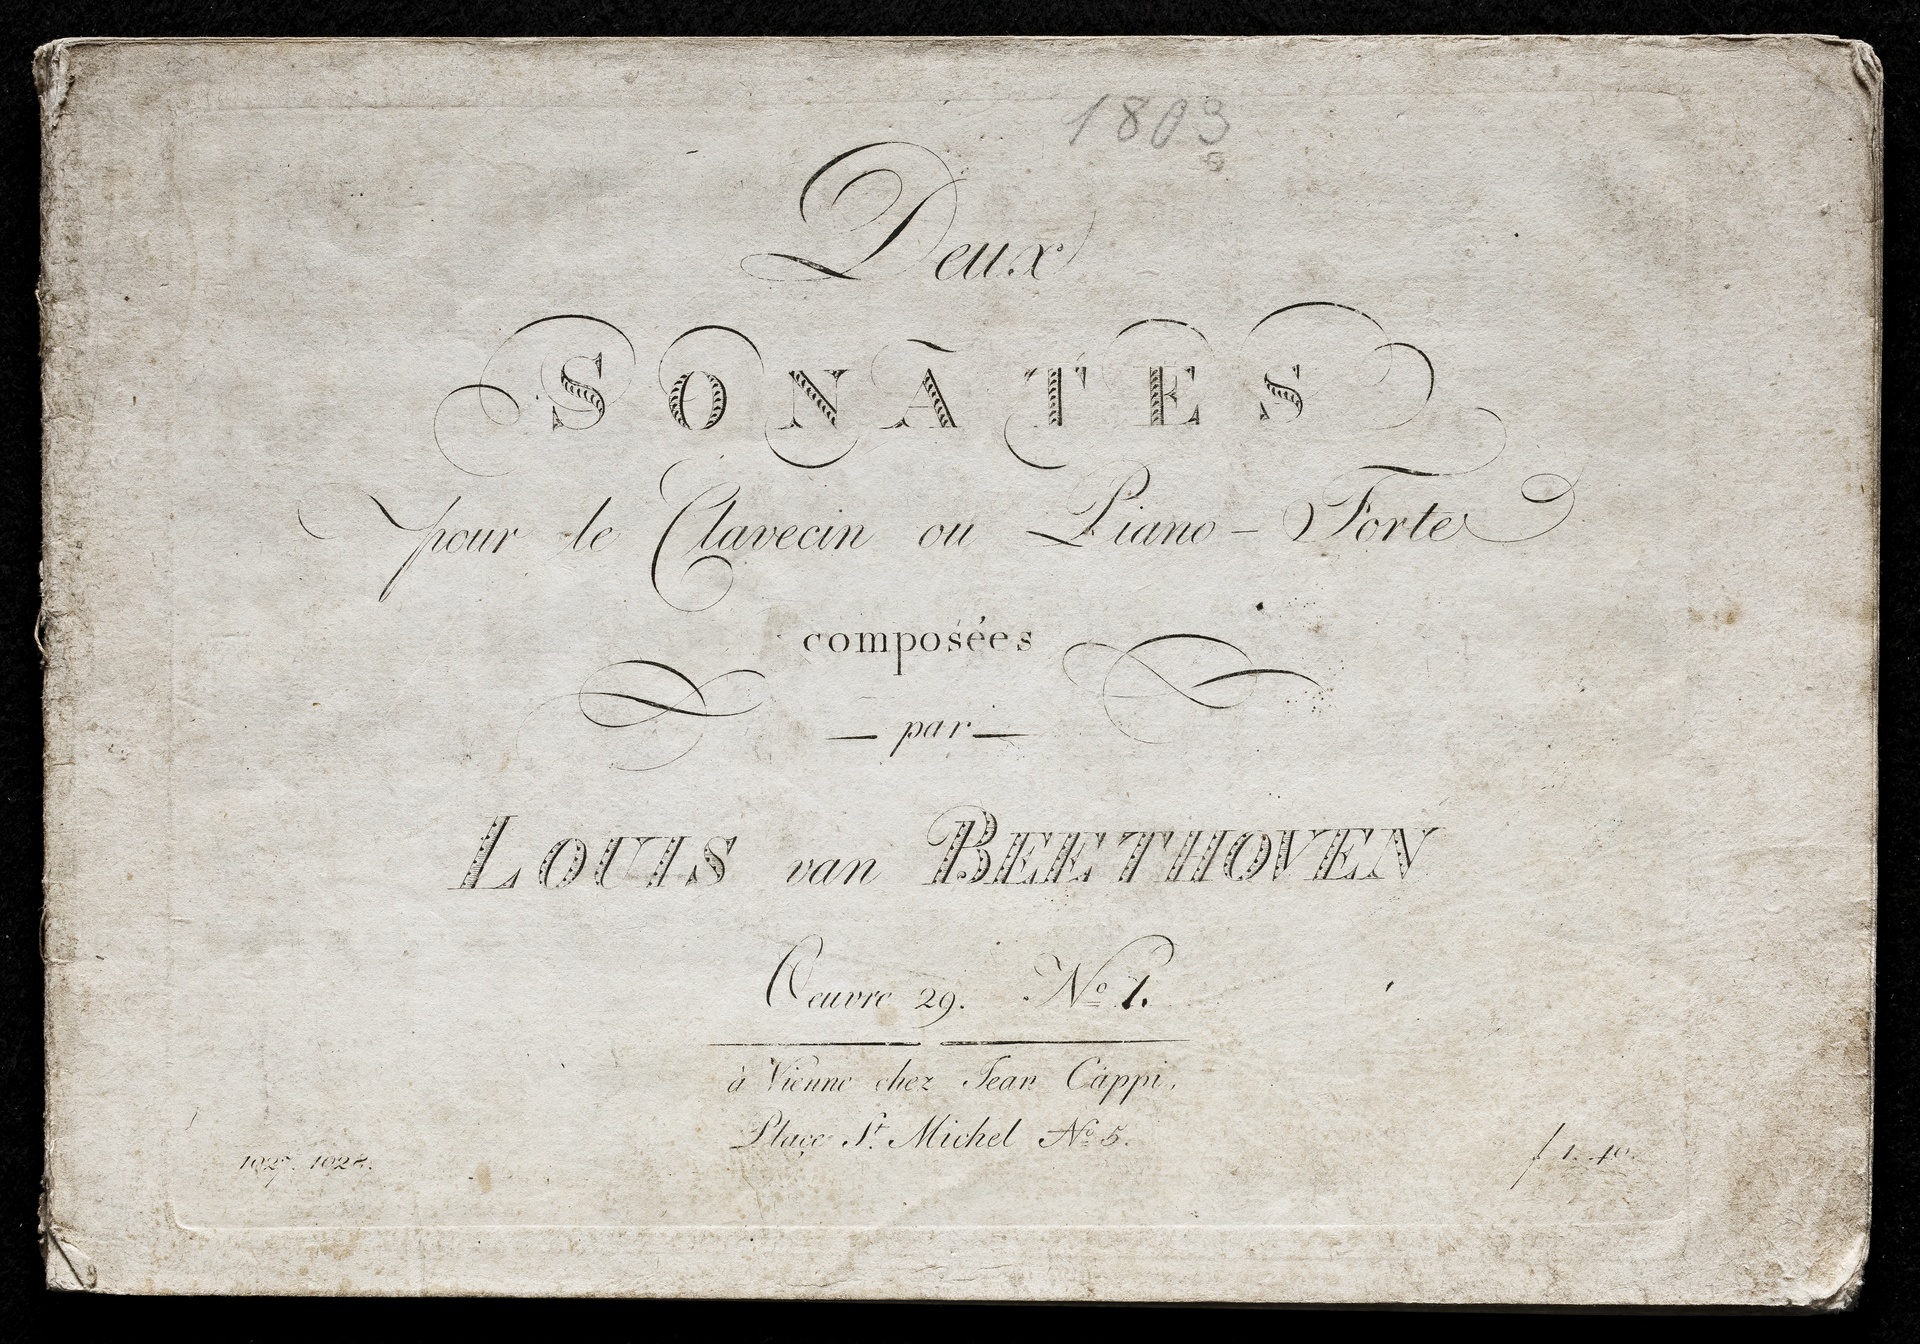 1803
Deux
SONATES
pour le Clavecin ou Piano-Forte
composées
— par —
LOUIS van BEETHOVEN
Oeuvre 29. No 1.
à Vienne chez Jean Cappi,
Place St. Michel No 5.
1027. 1028.
f 1. 40.